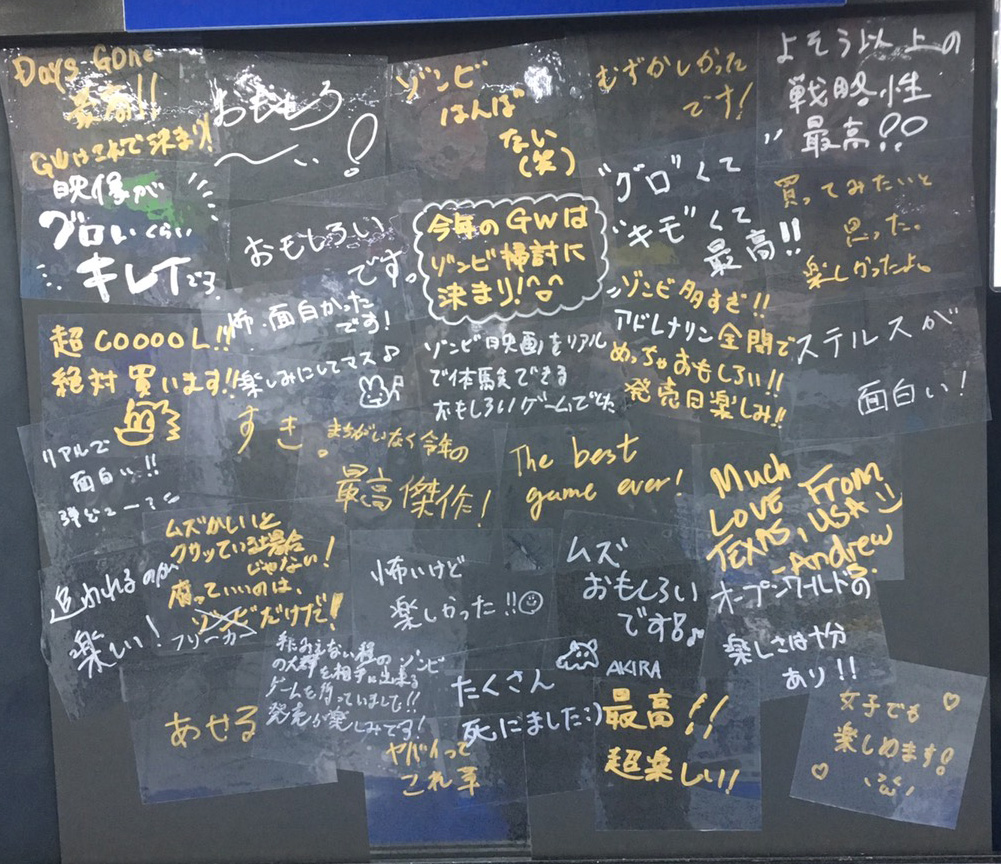 Days Gone
最高!!
GWはこれで決まり!
おもしろ
〜い!
ゾンビ
はんぱ
ない
(笑)
むずかしかった
です!
よそう以上の
戦略性
最高!!
映像が
グロいくらい
キレイです
おもしろい
です。
今年のGWは
ゾンビ掃討に
決まり!
"グロ"くて
"キモ"くて
最高!!
買ってみたいと
思った。
楽しかったよ。
超COOOOL!!
絶対買います!!
怖・面白かった
です!
楽しみにしてマス♪
ゾンビ映画をリアル
で体験できる
おもしろいゲームでした
ゾンビ多すぎ!!
アドレナリン全開で
めっちゃおもしろい!!
発売日楽しみ!!
ステルスが
面白い!
リアルで
面白い!!
すき。
まちがいなく今年の
最高傑作!
The best
game ever!
Much
LOVE From
TEXAS, USA :)
-Andrew
追われるのが
楽しい!
ムズかしいと
クサッている場合
じゃない!
腐っていいのは、
ゾンビだけだ!
フリーカー
怖いけど
楽しかった!!☺
ムズ
おもしろい
です♪
AKIRA
オープンワールドの
楽しさは十分
あり!!
あせる
の大群を相手に出来る
ゲームを待っていました!!
発売が楽しみです!
たくさん
死にました:)
ヤバイって
これ草
最高!!
超楽しい!
女子でも
楽しめます!